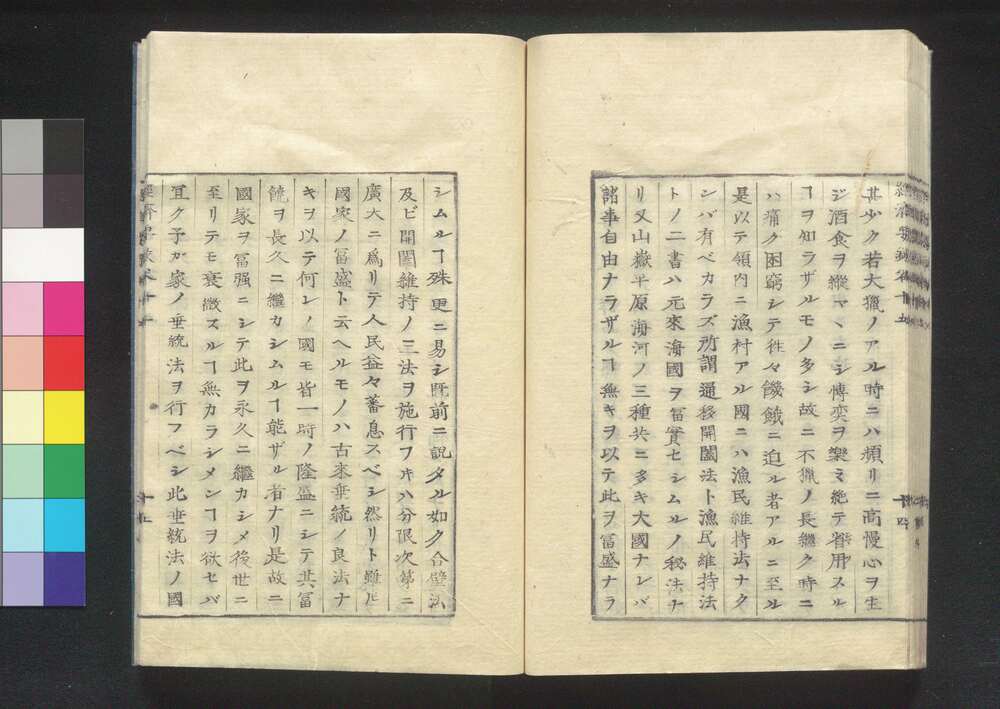 其少ク若大獵ノアル時ニハ頻リニ高慢心ヲ生
ジ酒食ヲ縱マヽニシ博奕ヲ樂ミ絶テ省用スル
ヿヲ知ラザルモノ多シ故ニ不獵ノ長繼ク時ニ
ハ痛ク困窮シテ往々饑餓ニ迫ル者アルニ至ル
是以テ領内ニ漁村アル國ニハ漁民維持法ナク
ンバ有ベカラズ所謂通移開闔法ト漁民維持法
トノ二書ハ元來海國ヲ冨實セシムルノ秘法ナ
リ又山嶽平原海河ノ三種共ニ多キ大國ナレバ
諸事自由ナラザルヿ無キヲ以テ此ヲ冨盛ナラ
シムルヿ殊更ニ易シ既前ニ説タル如ク合璧法
及ビ開闔維持ノ三法ヲ施行フキハ分限次第ニ
廣大ニ爲リテ人民益々蕃息スベシ然リト雖ㇳモ
國家ノ冨盛ト云ヘルモノハ古來垂統ノ良法ナ
キヲ以テ何レノ國モ皆一時ノ隆盛ニシテ其冨
饒ヲ長久ニ繼カシムルヿ能ザル者ナリ是故ニ
國家ヲ冨强ニシテ此ヲ永久ニ繼カシメ後世ニ
至リテモ衰微スルヿ無カラシメンヿヲ欲セバ
宜ク予ガ家ノ垂統法ヲ行フベシ此垂統法ノ國